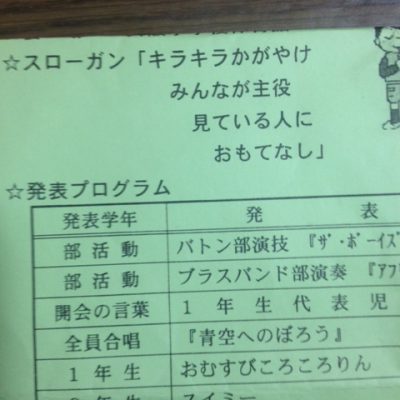 ☆スローガン「キラキラかがやけ
みんなが主役
見ている人に
おもてなし」
☆発表プログラム
発表学年 発 表
部 活 動 バトン部演技 『ザ・ボーイズ
部 活 動 ブラスバンド部演奏 『アフ
開会の言葉 1 年 生 代 表 児
全員合唱 『青空へのぼろう』
1 年 生 おむすびころころりん
年 生 スイミー